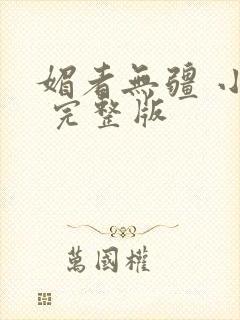 媚者無疆 小
完整版
萬國權